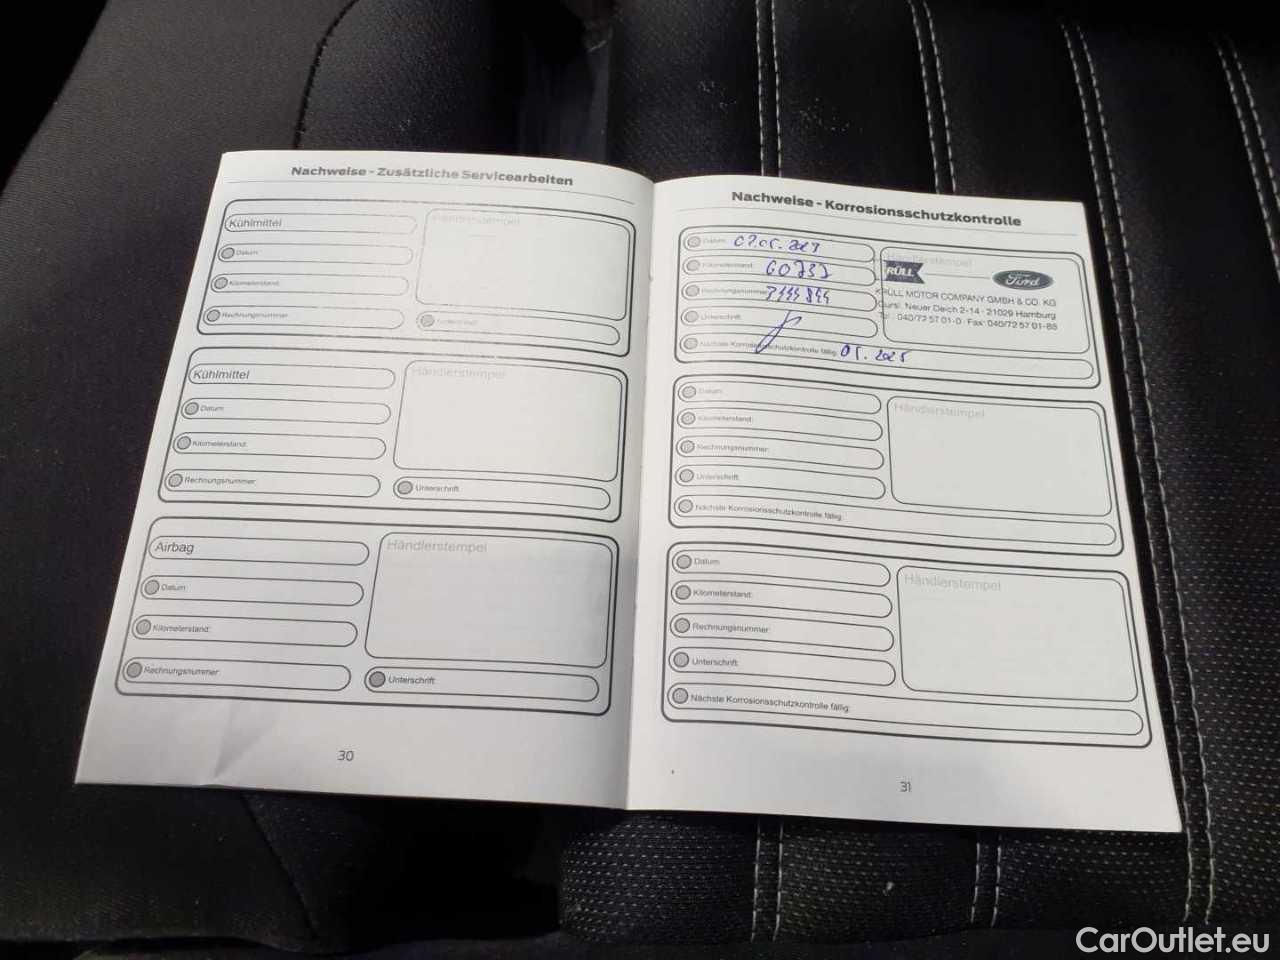 Nachweise - Zusätzliche Servicearbeiten
Kühlmittel
Händlerstempel
Datum:
Kilometerstand:
Rechnungsnummer:
Unterschrift:
Kühlmittel
Händlerstempel
Datum:
Kilometerstand:
Rechnungsnummer:
Unterschrift:
Airbag
Händlerstempel
Datum:
Kilometerstand:
Rechnungsnummer:
Unterschrift:
30
Nachweise - Korrosionsschutzkontrolle
Datum:
Kilometerstand:
Rechnungsnummer:
Unterschrift:
Nächste Korrosionsschutzkontrolle fällig: 05.2025
Händlerstempel
KRÜLL Ford
KRÜLL MOTOR COMPANY GMBH & CO. KG
Cursl. Neuer Deich 2-14 · 21029 Hamburg
Tel.: 040/72 57 01-0 · Fax: 040/72 57 01-88
Datum:
Händlerstempel
Kilometerstand:
Rechnungsnummer:
Unterschrift:
Nächste Korrosionsschutzkontrolle fällig:
Datum:
Händlerstempel
Kilometerstand:
Rechnungsnummer:
Unterschrift:
Nächste Korrosionsschutzkontrolle fällig:
31
CarOutlet.eu